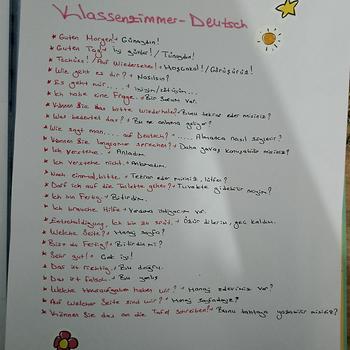 Klassenzimmer-Deutsch
* Guten Morgen! → Günaydın!
* Guten Tag! → İyi günler! / Tünaydın!
* Tschüss! / Auf Wiedersehen! → Hoşçakal! / Görüşürüz!
* Wie geht es dir? → Nasılsın?
* Es geht mir ..... → İyiyim / kötüyüm...
* Ich habe eine Frage. → Bir sorum var.
* Können Sie das bitte wiederholen? → Bunu tekrar eder misiniz?
* Was bedeutet das? → Bu ne anlama geliyor?
* Wie sagt man .... auf Deutsch? → ..... Almanca nasıl söylenir?
* Können Sie langsamer sprechen? → Daha yavaş konuşabilir misiniz?
* Ich verstehe → Anladım.
* Ich verstehe nicht. → Anlamadım.
* Noch einmal, bitte. → Tekrar eder misiniz, lütfen?
* Darf ich auf die Toilette gehen? → Tuvalete gidebilir miyim?
* Ich bin Fertig → Bitirdim.
* Ich brauche Hilfe → Yardıma ihtiyacım var.
* Entschuldigung, ich bin zu spät. → Özür dilerim, geç kaldım.
* Welche Seite? → Hangi sayfa?
* Bist du Fertig? → Bitirdin mi?
* Sehr gut! → Çok iyi!
* Das ist richtig. → Bu doğru.
* Das ist falsch → Bu yanlış
* Welche Hausaufgaben haben wir? → Hangi ödevimiz var?
* Auf welcher Seite sind wir? → Hangi sayfadayız?
* Können Sie das an die Tafel schreiben? → Bunu tahtaya yazabilir misiniz?